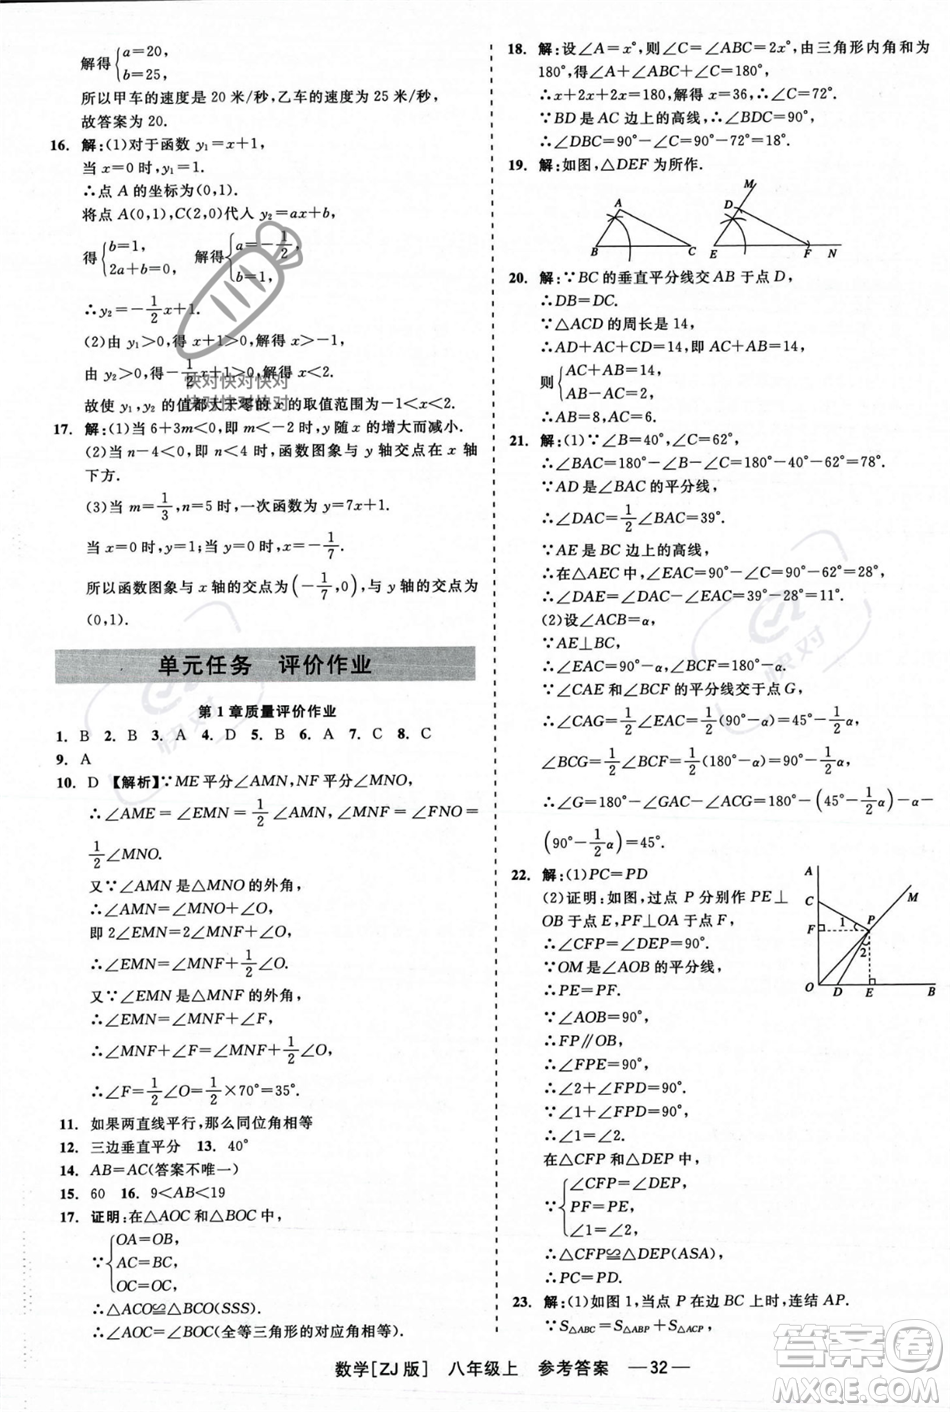 解得{a=20,
b=25,
所以甲车的速度是 20 米/秒,乙车的速度为 25 米/秒,
故答案为 20.
16. 解:(1)对于函数 y₁=x+1,
当 x=0 时,y₁=1.
∴点 A 的坐标为(0,1).
将点 A(0,1),C(2,0)代人 y₂=ax+b,
得{b=1, 2a+b=0, 解得{a=-1/2, b=1.
∴y₂=-1/2x+1.
(2)由 y₁>0,得 x+1>0,解得 x>-1.
由 y₂>0,得-1/2x+1>0,解得 x<2.
故使 y₁,y₂ 的值都大于零的 x 的取值范围为-1<x<2.
17. 解:(1)当 6+3m<0,即 m<-2 时,y 随 x 的增大而减小.
(2)当 n-4<0,即 n<4 时,函数图象与 y 轴交点在 x 轴
下方.
(3)当 m=1/3,n=5 时,一次函数为 y=7x+1.
当 x=0 时,y=1,当 y=0 时,x=-1/7.
所以函数图象与 x 轴的交点为(-1/7,0),与 y 轴的交点为
(0,1).
单元任务 评价作业
第 1 章质量评价作业
1. B 2. B 3. A 4. D 5. B 6. A 7. C 8. C
9. A
10. D 【解析】∵ME 平分∠AMN,NF 平分∠MNO,
∴∠AME=∠EMN=1/2∠AMN,∠MNF=∠FNO=
1/2∠MNO.
又∵∠AMN 是△MNO 的外角,
即 2∠EMN=2∠MNF+∠O,
∴∠EMN=∠MNF+1/2∠O.
又∵∠EMN 是△MNF 的外角,
∴∠EMN=∠MNF+∠F,
∴∠MNF+∠F=∠MNF+1/2∠O,
∴∠F=1/2∠O=1/2×70°=35°.
11. 如果两直线平行,那么同位角相等
12. 三边垂直平分 13. 40°
14. AB=AC(答案不唯一)
15. 60 16. 9<AB<19
17. 证明:在△AOC 和△BOC 中,
∵{OA=OB,
AC=BC,
OC=OC,
∴△ACO≌△BCO(SSS).
∴∠AOC=∠BOC(全等三角形的对应角相等)
18. 解:设∠A=x°,则∠C=∠ABC=2x°,由三角形内角和为
180°,得∠A+∠ABC+∠C=180°,
∴x+2x+2x=180,解得 x=36,∴∠C=72°.
∵BD 是 AC 边上的高线,∴∠BDC=90°,
∴∠DBC=90°-∠C=90°-72°=18°.
19. 解:如图,△DEF 为所作.
A
B
C
M
D
E
F
N
20. 解:∵BC 的垂直平分线交 AB 于点 D,
∴DB=DC.
∵△ACD 的周长是 14,
∴AD+AC+CD=14,即 AC+AB=14,
则{AC+AB=14,
AB-AC=2,
∴AB=8,AC=6.
21. 解:(1)∵∠B=40°,∠C=62°,
∴∠BAC=180°-∠B-∠C=180°-40°-62°=78°.
∵AD 是∠BAC 的平分线,
∴∠DAC=1/2∠BAC=39°.
∵AE 是 BC 边上的高线,
∴在△AEC 中,∠EAC=90°-∠C=90°-62°=28°,
∴∠DAE=∠DAC-∠EAC=39°-28°=11°.
(2)设∠ACB=α,
∵AE⊥BC,
∴∠EAC=90°-∠ACB=90°-α,∠BCF=180°-α,
∵∠CAE 和∠BCF 的平分线交于点 G,
∴∠CAG=1/2∠EAC=1/2(90°-α)=45°-1/2α,
∠BCG=1/2∠BCF=1/2(180°-α)=90°-1/2α,
∴∠G=180°-∠GAC-∠ACG=180°-(45°-1/2α)-α-
(90°-1/2α)=45°.
22. 解:(1)PC=PD
(2)证明:如图,过点 P 分别作 PE⊥
OB 于点 E,PF⊥OA 于点 F,
∴∠CFP=∠DEP=90°.
∵OM 是∠AOB 的平分线,
∴PE=PF.
∵∠AOB=90°,
∴FP∥OB,
∴∠FPE=90°.
∴∠2+∠FPD=90°.
∵∠1+∠FPD=90°,
∴∠1=∠2.
在△CFP 和△DEP 中,
∵{∠CFP=∠DEP,
PF=PE,
∠1=∠2,
∴△CFP≌△DEP(ASA).
∴PC=PD.
A
C
F
M
P
1
2
O
D
E
B
23. 解:(1)如图 1,当点 P 在边 BC 上时,连结 AP.
∵S△ABC=S△ABP+S△ACP,
数学[ZJ 版] 八年级上 参考答案 —32—
快对快对快对
快对快对快对
快对
快对
答案圈
MXQE.COM